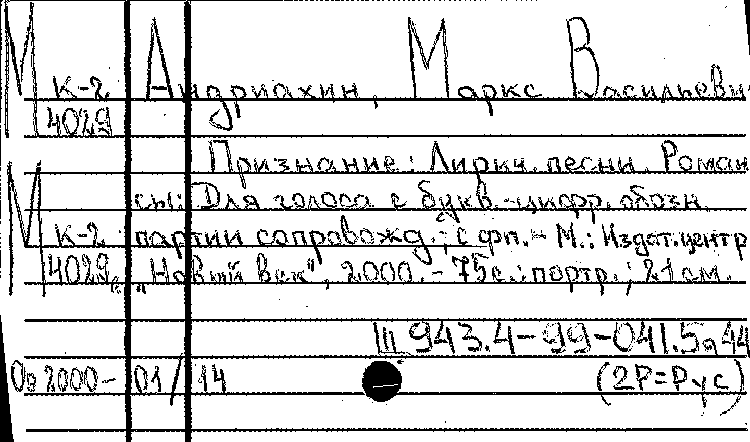 М К-2 4029 Андриахин, Маркс Васильеви
Признание: Лирич. песни. Роман
сы: Для голоса с букв.-цифр. обозн.
М К-2 партии сопровожд.; с фп. - М.: Издат. центр
4029а "Новый век", 2000. - 75с.: портр.; 21 см.
Щ 943.4-99-041.5я44
Ов 2000- 01/14 (2Р=Рус)